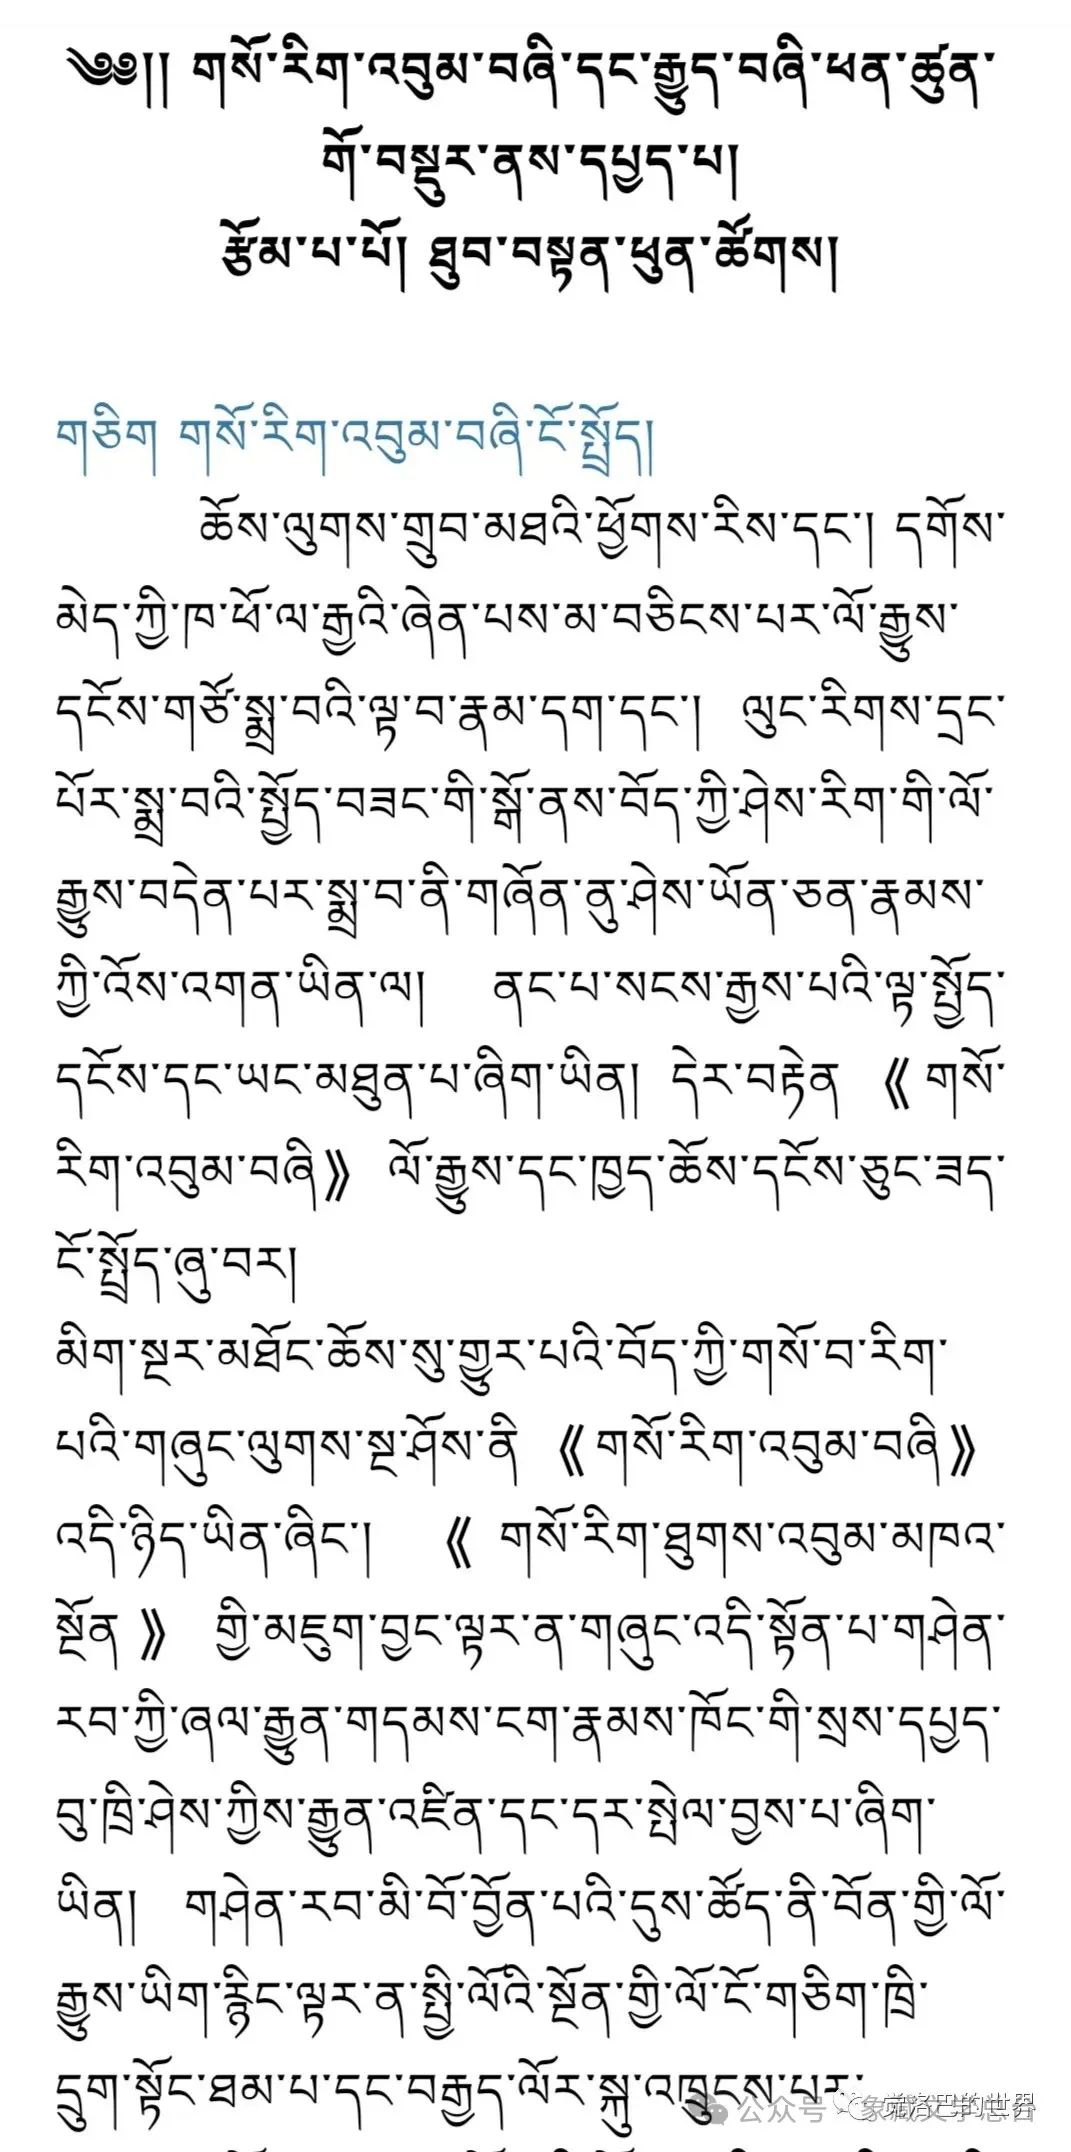 ༄༅།། གསོ་རིག་འབུམ་བཞི་དང་རྒྱུད་བཞི་ཕན་ཚུན་
གོ་བསྡུར་ནས་དཔྱད་པ།
རྩོམ་པ་པོ། ཐུབ་བསྟན་ཕུན་ཚོགས།
གཅིག གསོ་རིག་འབུམ་བཞི་ངོ་སྤྲོད།
ཆོས་ལུགས་གྲུབ་མཐའི་ཕྱོགས་རིས་དང་། དགོས་
མེད་ཀྱི་ཁ་ཕོ་ལ་རྒྱའི་ཞེན་པས་མ་བཅིངས་པར་ལོ་རྒྱུས་
དངོས་གཙོ་སྨྲ་བའི་ལྟ་བ་རྣམ་དག་དང་། ལུང་རིགས་དྲང་
པོར་སྨྲ་བའི་སྤྱོད་བཟང་གི་སྒོ་ནས་བོད་ཀྱི་ཤེས་རིག་གི་ལོ་
རྒྱུས་བདེན་པར་སྨྲ་བ་ནི་གཞོན་ནུ་ཤེས་ཡོན་ཅན་རྣམས་
ཀྱི་འོས་འགན་ཡིན་ལ། ནང་པ་སངས་རྒྱས་པའི་ལྟ་སྤྱོད་
དངོས་དང་ཡང་མཐུན་པ་ཞིག་ཡིན། དེར་བརྟེན 《 གསོ་
རིག་འབུམ་བཞི》 ལོ་རྒྱུས་དང་ཁྱད་ཆོས་དངོས་ཅུང་ཟད་
ངོ་སྤྲོད་ཞུ་བར།
མིག་སྔར་མཐོང་ཆོས་སུ་གྱུར་པའི་བོད་ཀྱི་གསོ་བ་རིག་
པའི་གཞུང་ལུགས་སྔ་ཤོས་ནི 《 གསོ་རིག་འབུམ་བཞི》
འདི་ཉིད་ཡིན་ཞིང་། 《 གསོ་རིག་ཐུགས་འབུམ་མཁའ་
སྔོན 》 གྱི་མཇུག་བྱང་ལྟར་ན་གཞུང་འདི་སྟོན་པ་གཤེན་
རབ་ཀྱི་ཞལ་རྒྱུན་གདམས་ངག་རྣམས་ཁོང་གི་སྲས་དཔྱད་
བུ་ཁྲི་ཤེས་ཀྱིས་རྒྱུན་འཛིན་དང་དར་སྤེལ་བྱས་པ་ཞིག་
ཡིན། གཤེན་རབ་མི་བོ་བྱོན་པའི་དུས་ཚོད་ནི་བོན་གྱི་ལོ་
རྒྱུས་ཡིག་རྙིང་ལྟར་ན་སྤྱི་ལོའི་སྔོན་གྱི་ལོ་ངོ་གཅིག་ཁྲི་
དྲུག་སྟོང་ཐམ་པ་དང་བརྒྱད་ལོར་སྐུ་འཁྲུངས་པར་
公众号